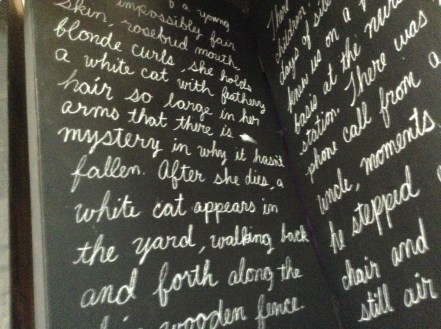 of a young
impossibly fair
skin, rosebud mouth
blonde curls she holds
a white cat with feathery
hair so large in her
arms that there is
mystery in why it hasn't
fallen. After she dies, a
white cat appears in
the yard, walking back
and forth along the
wooden fence.
There
children,
days of
knew us on a
basis at the
station. There was
phone call from a
uncle, moments
he stepped
chair and
still air